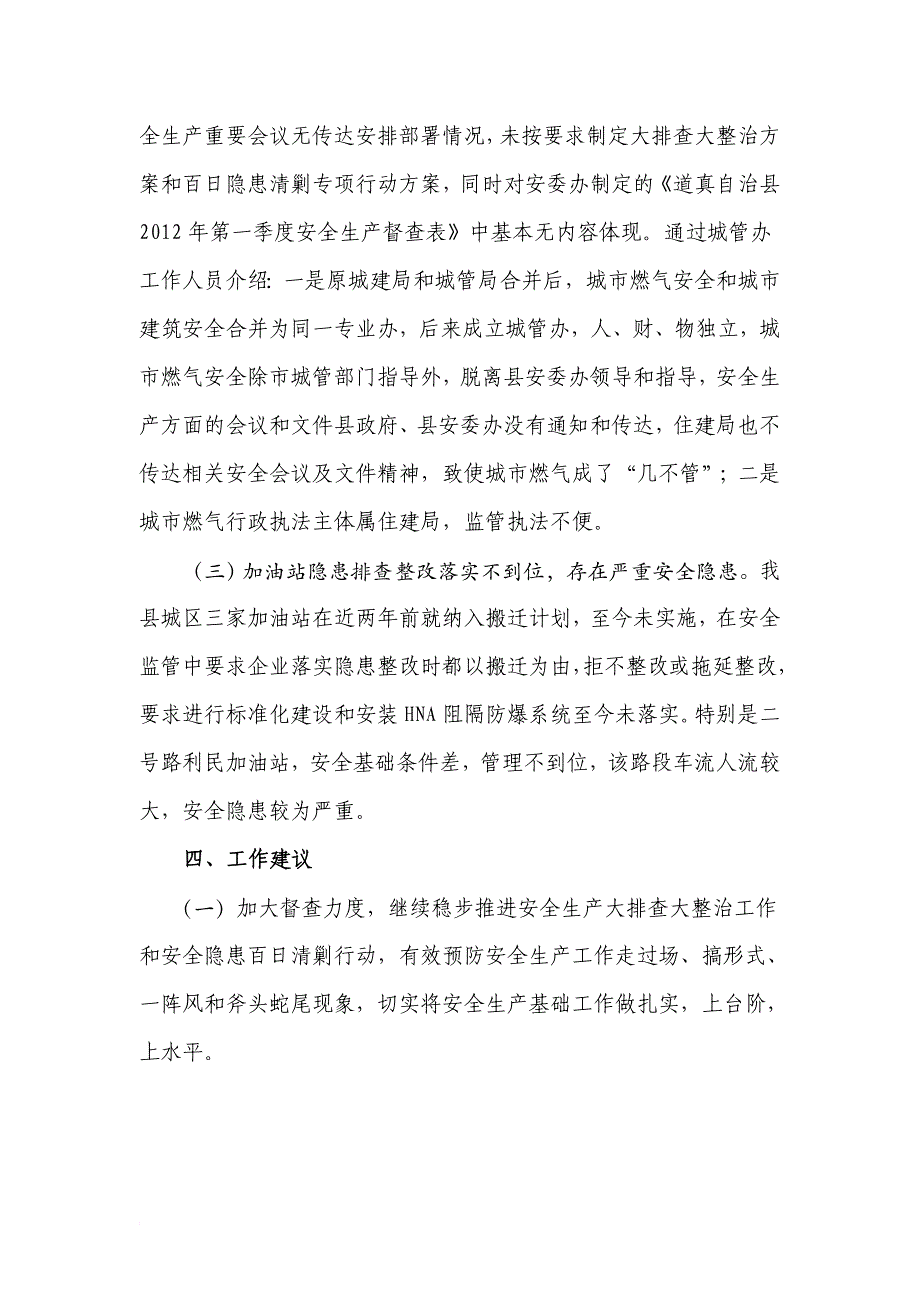 全生产重要会议无传达安排部署情况，未按要求制定大排查大整治方
案和百日隐患清剿专项行动方案，同时对安委办制定的《道真自治县
2012年第一季度安全生产督查表》中基本无内容体现。通过城管办
工作人员介绍：一是原城建局和城管局合并后，城市燃气安全和城市
建筑安全合并为同一专业办，后来成立城管办，人、财、物独立，城
市燃气安全除市城管部门指导外，脱离县安委办领导和指导，安全生
产方面的会议和文件县政府、县安委办没有通知和传达，住建局也不
传达相关安全会议及文件精神，致使城市燃气成了“几不管”；二是
城市燃气行政执法主体属住建局，监管执法不便。
（三）加油站隐患排查整改落实不到位，存在严重安全隐患。我
县城区三家加油站在近两年前就纳入搬迁计划，至今未实施，在安全
监管中要求企业落实隐患整改时都以搬迁为由，拒不整改或拖延整改，
要求进行标准化建设和安装HNA阻隔防爆系统至今未落实。特别是二
号路利民加油站，安全基础条件差，管理不到位，该路段车流人流较
大，安全隐患较为严重。
四、工作建议
（一）加大督查力度，继续稳步推进安全生产大排查大整治工作
和安全隐患百日清剿行动，有效预防安全生产工作走过场、搞形式、
一阵风和斧头蛇尾现象，切实将安全生产基础工作做扎实，上台阶，
上水平。